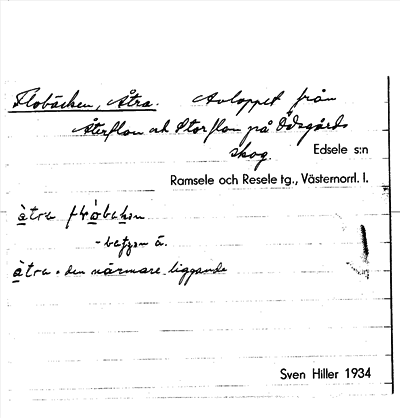 Flobäcken, Åtra. Avloppet från
Återflon och Storflon på Ödsgårds
skog. Edsele s:n
Ramsele och Resele tg., Västernorrl. l.
àtra
- betyder å.
àtra = den närmare liggande
Sven Hiller 1934